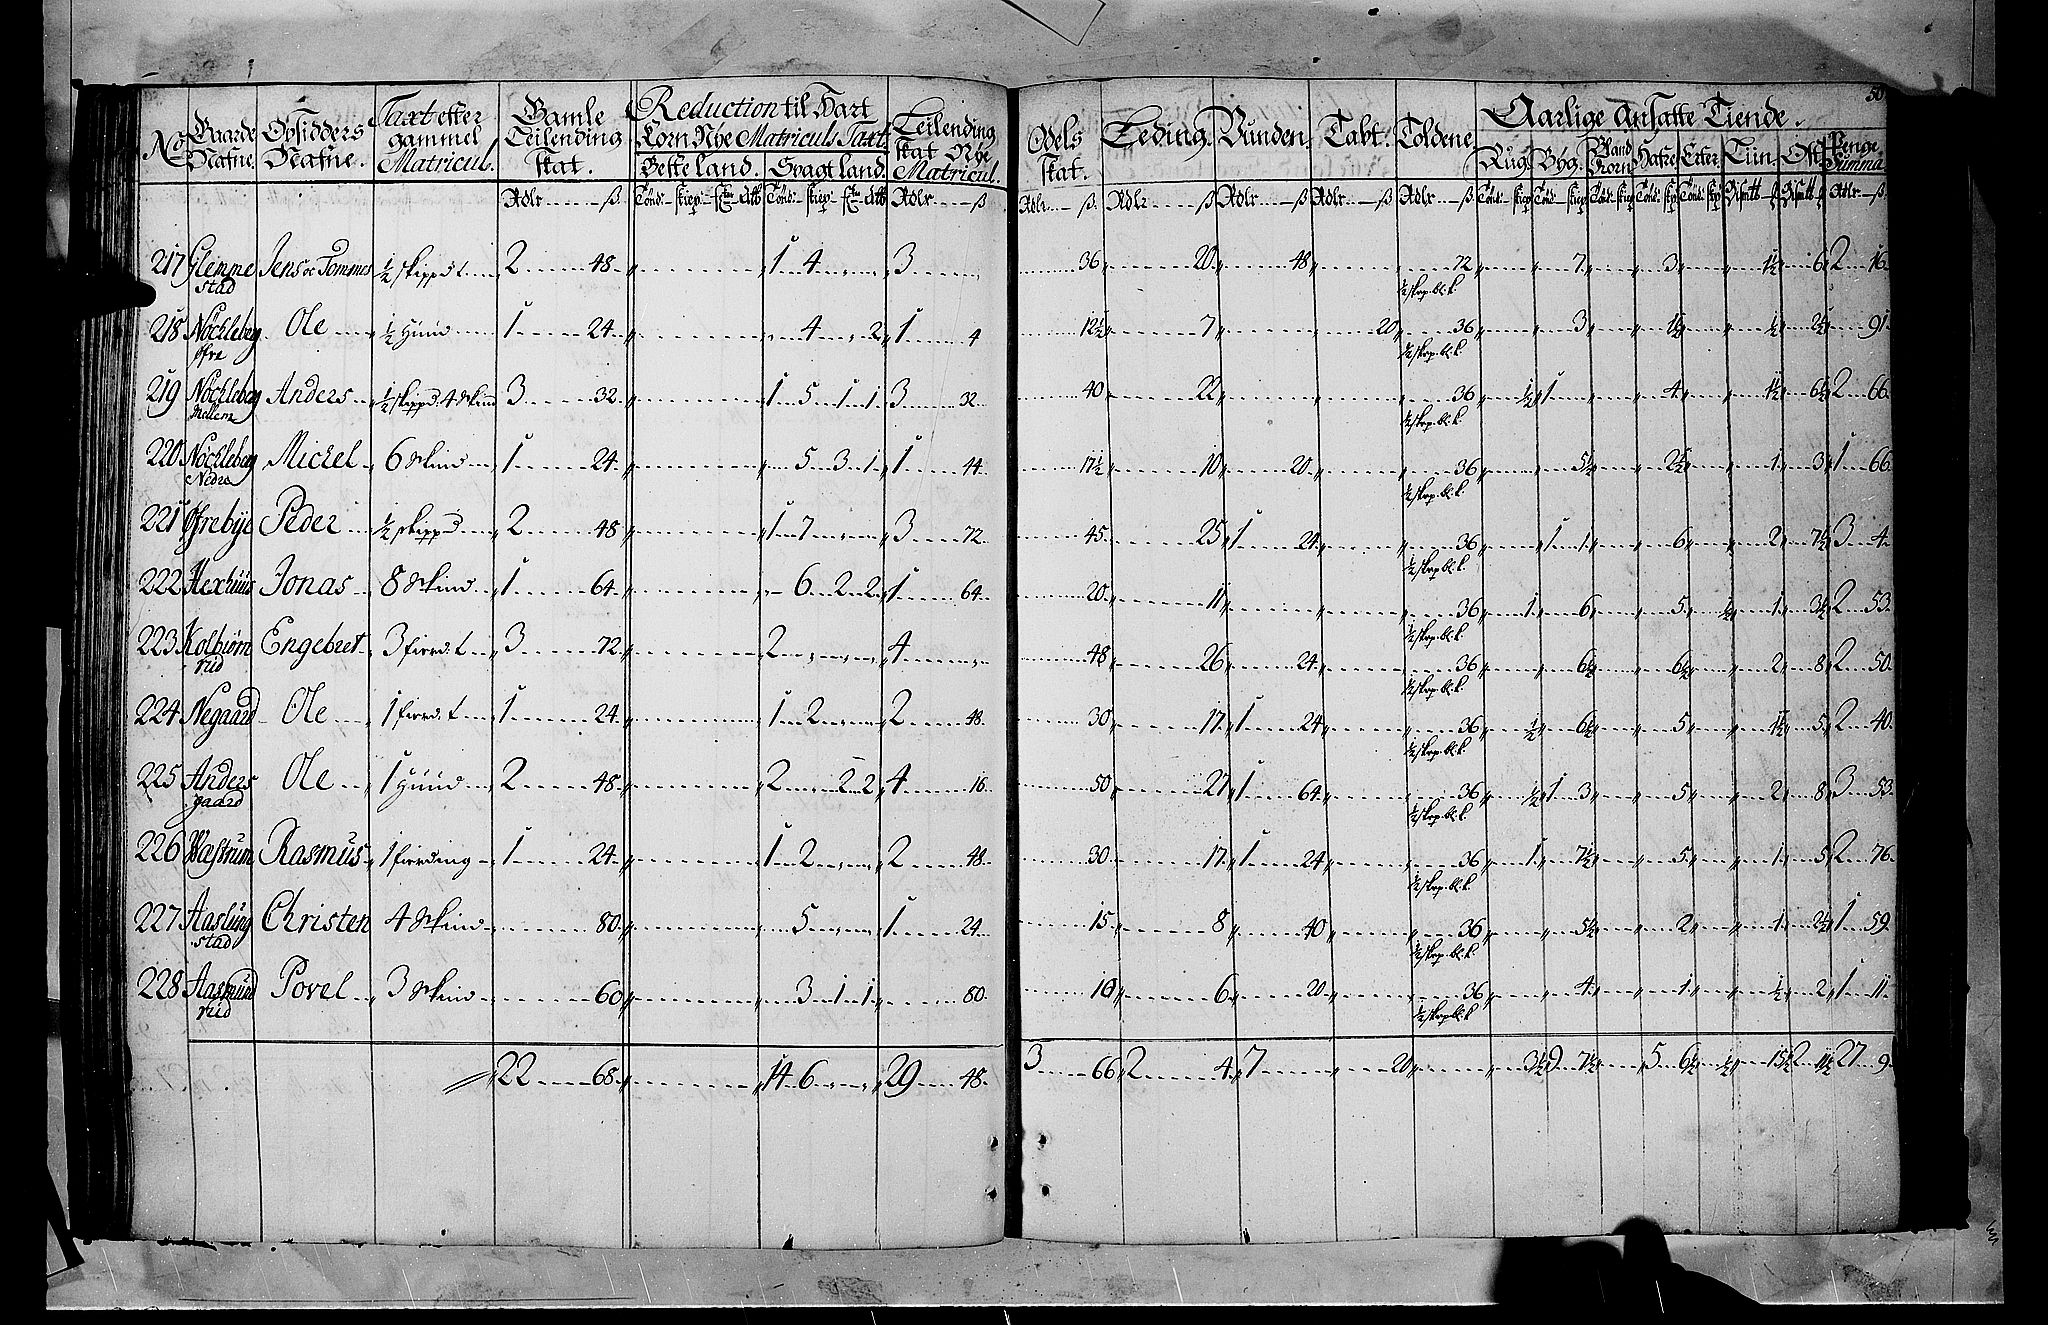 50
No Gaarde Nafne. Opsidders Nafne. Taxt efter gammel Matricul. Gamle Leilending skat. Reduction til Hart Korn Nye Matriculs Taxt. Leilending skat Nye Matricul. Odels skat. Leding. Vunden. Tabt. Toldene. Aarlige Ansatte Tiende.
Beste land. Svagt land. Rug. Byg. Bland Korn Hafre. Erter. Penge Summa
Rdlr ß Tönd: skiep Tönd: skiep Rdlr ß Rdlr ß Rdlr ß Rdlr ß Rdlr ß Rdlr ß Tönd: skiep Tönd: skiep Tönd: skiep Tönd: skp Tönd: skp Rdlr ß
217 Glemmestad Jens oc Tommes ½ skippd t 2 48 1 4 „ „ 3 „ 36 20 48 72 7 3 1½ 6 2 16
½ skp. bl. k.
218 Nöchleberg øfre Ole ½ Huud 1 24 „ 4 „ 2 1 4 12½ 7 20 36 3 1½ ½ 2½ 91
½ skp. bl. k.
219 Nöchleberg Mellem Anders ½ skippd 4 Skind 3 32 1 5 1 1 3 32 40 22 36 ½ 1 4 1½ 6½ 2 66
½ skp. bl. k.
220 Nöchleberg Nedre Michel 6 Skind 1 24 5 3 1 1 44 17½ 10 20 36 5½ 2½ 1 3 1 66
½ skp. bl. k.
221 Ofrebye Peder ½ skippd 2 48 1 7 „ „ 3 72 45 25 1 24 36 1 1 6 2 7½ 3 4
½ skp. bl. k.
222 Hexhuus Jonas 8 Skind 1 64 6 2 2 1 64 20 11 36 1 6 5 ½ 1 3½ 2 53
½ skp. bl. k.
223 Kolbiørnrud Engebret 3 fierd. t 3 72 2 „ „ „ 4 „ 48 26 24 36 6½ 6½ 2 8 2 50
½ skp. bl. k.
224 Negaard Ole 1 fierd. t 1 24 1 2 „ „ 2 48 30 17 1 24 36 ½ 6½ 5 1½ 5 2 40
½ skp. bl. k.
225 Andersgaard Ole 1 Huud 2 48 2 „ 2 2 4 16 50 27 1 64 36 ½ 1 3 5 2 8 3 53
½ skp. bl. k.
226 Wæstrum Rasmus 1 fierding 1 24 1 2 „ „ 2 48 30 17 1 24 36 1 7½ 5 1 5 2 76
½ skp. bl. k.
227 Aaslungstad Christen 4 Skind 80 5 „ „ 1 24 15 8 40 36 5½ 2 1 2½ 1 59
½ skp. bl. k.
228 Aasmundrud Povel 3 Skind 60 3 1 1 80 10 6 20 36 4 1 ½ 2 1 11
½ skp. bl. k.
22 68 14 6 „ „ 29 48 3 66 2 4 7 20 3½ 9 7½ 5 6½ ½ 15½ 2 11½ 27 9